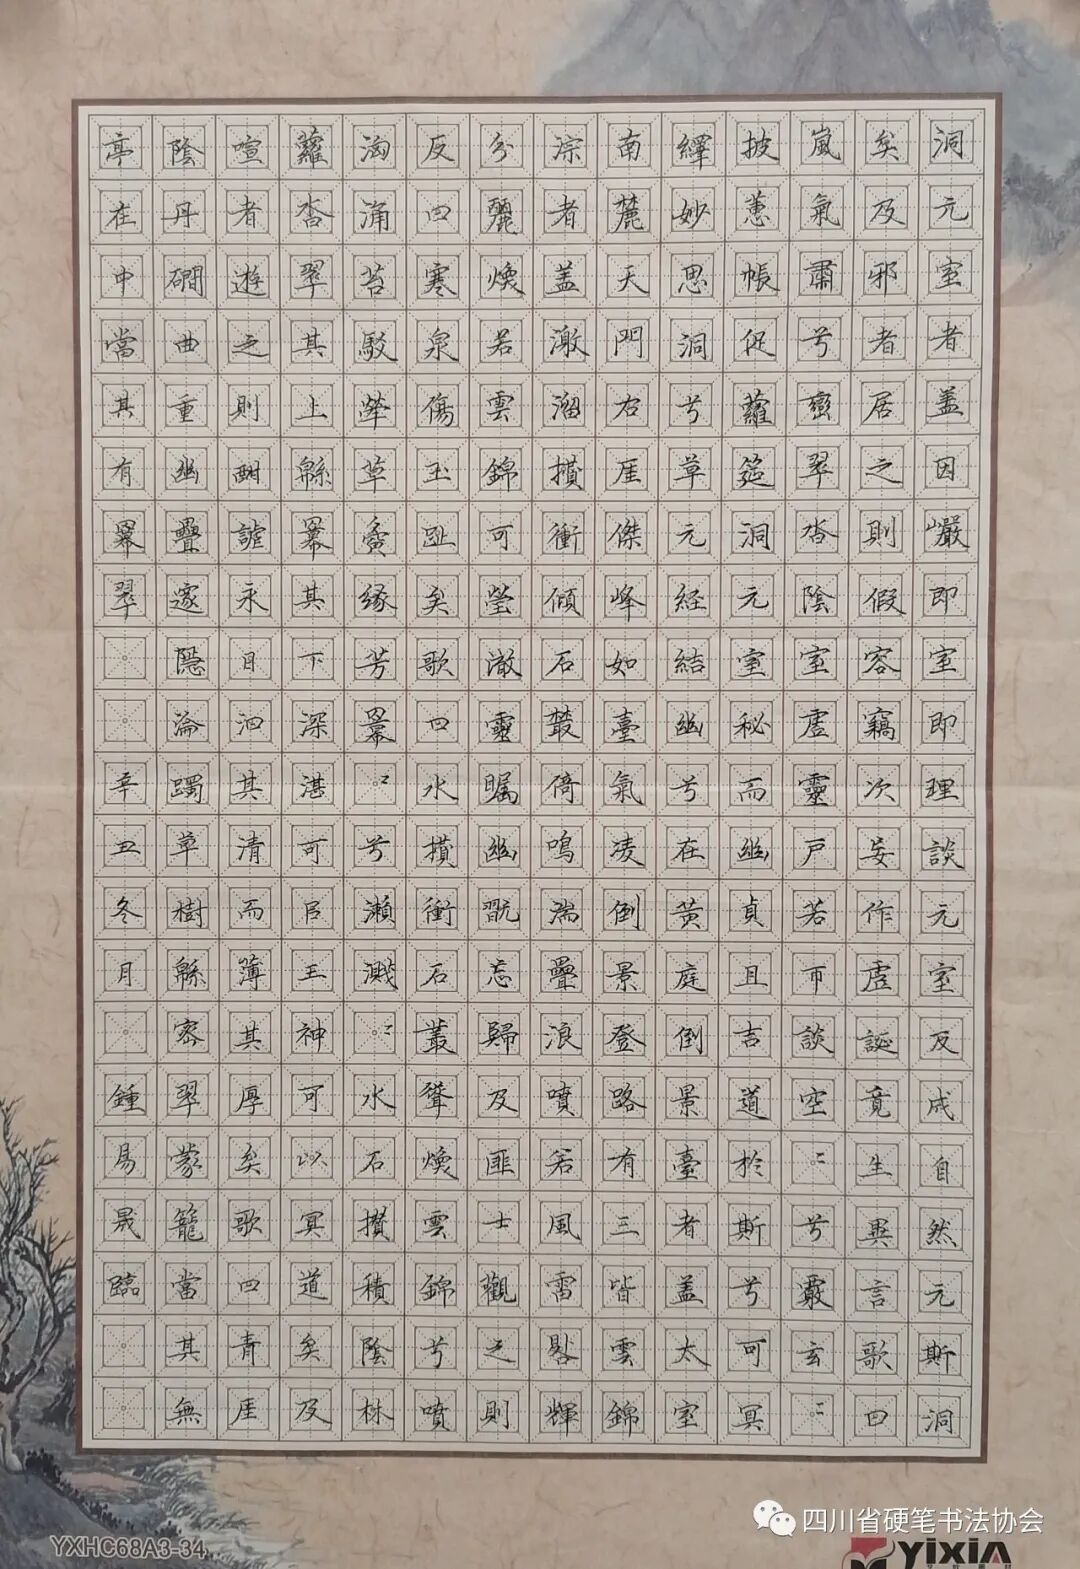 洞元室者盖因巖即室即理談元室及成自然元斯洞
矣及邪者居之則假容竊次妄作虛誕竟生異言歌曰
嵐氣肅兮巒翠沓陰室虛靈戶若市談空〻兮覈玄〻
披蕙帳促蘿筵洞元室秘而幽貞且吉道於斯兮可冥
繹妙思洞兮草元經結幽兮在黃庭倒景臺者盖太室
南麓天門右厓傑峰如臺氣凌倒景登路有三皆雲錦
淙者盖激溜攢衝傾石叢倚鳴湍疊浪噴若風雷輝
分麗煥若雲錦可瑩澈靈矚幽翫忘歸及匪士觀之則
反曰寒泉傷玉趾矣歌曰水攢衝石叢聳煥雲錦兮噴
洶涌苔駁犖草夤緣芳冪〻兮瀨濺〻水石攢積陰林
蘿沓翠其上緜冪其下深湛可㠯王神可以冥道矣及
喧者遊之則酣謔永日汩其清而薄其厚矣歌曰青厓
陰丹磵曲重幽疊邃隱淪躅草樹緜密翠蒙籠當其無
亭在中當其有冪翠 辛丑冬月 鍾易晟臨
四川省硬笔书法协会
YXHC68A3-34
YiXiN